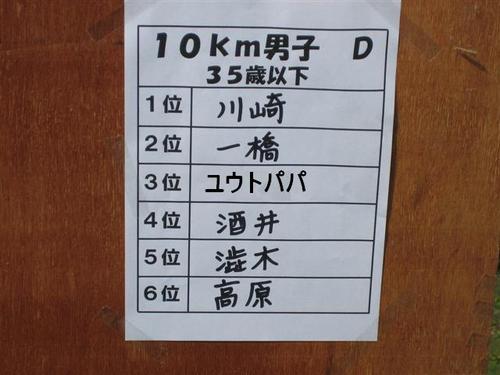 10Km男子 D
35歳以下
1位 川崎
2位 一橋
3位 ユウトパパ
4位 酒井
5位 澁木
6位 高原